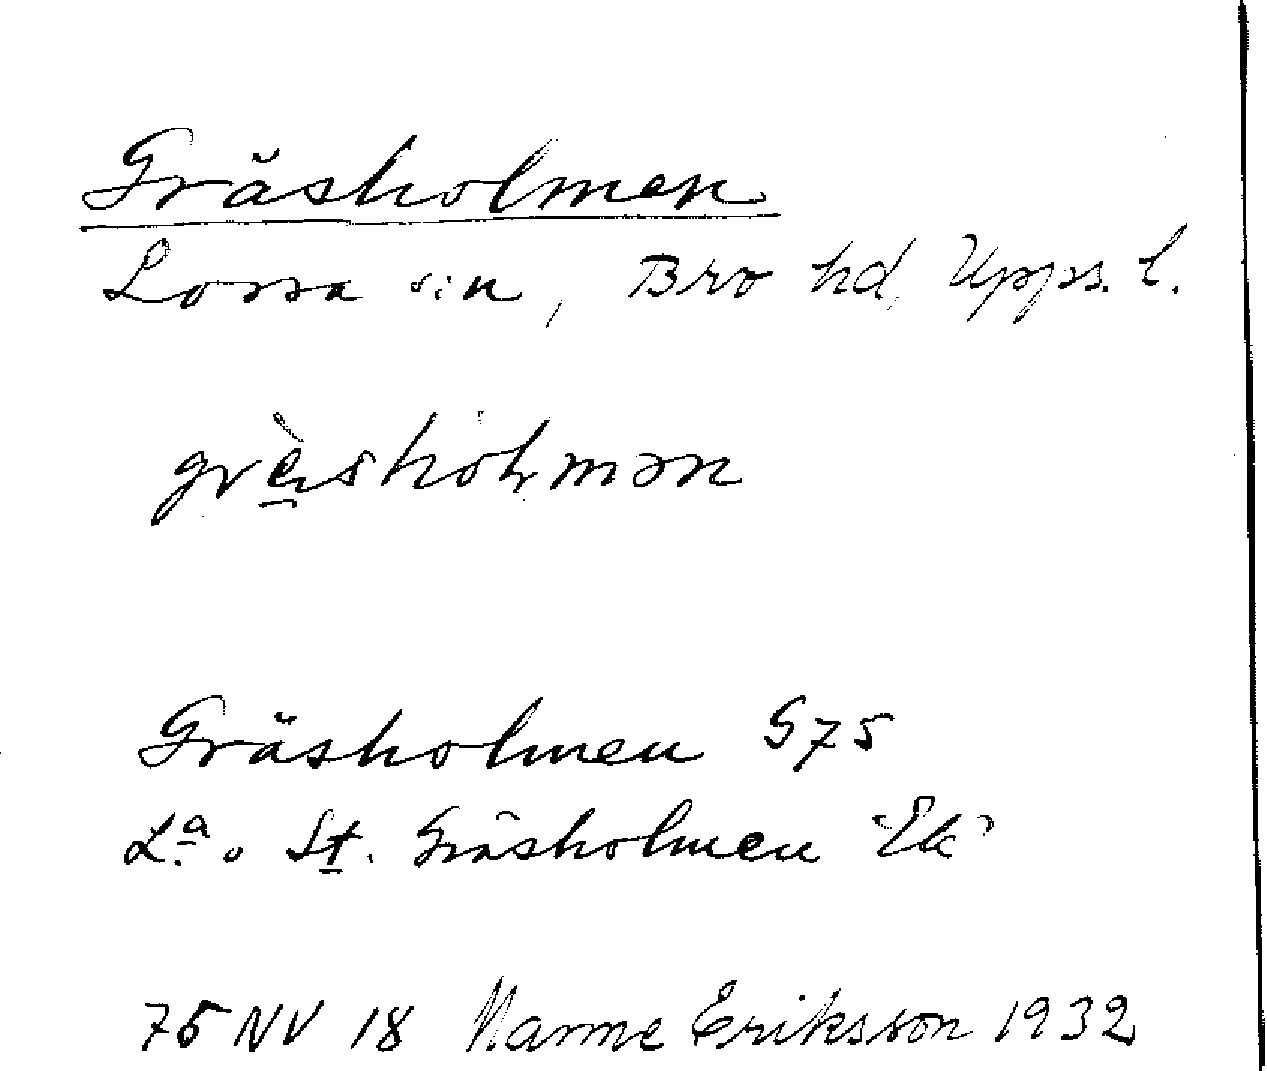 Gräsholmen
Lossa sn, Bro hd, Upps. l.
grè̱sholmən
Gräsholmen G75
La o St. Gräsholmen "Ek"
75 NV 18 Manne Eriksson 1932